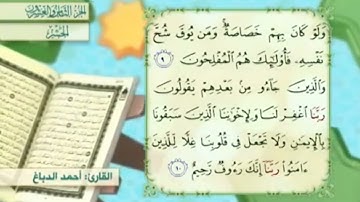 الجزء الثامن والعشرون
الحشر
وَلَوْ كَانَ بِهِمْ خَصَاصَةٌ وَمَن يُوقَ شُحَّ
نَفْسِهِ فَأُوْلَٰٓئِكَ هُمُ ٱلْمُفْلِحُونَ ٩
وَٱلَّذِينَ جَآءُو مِنۢ بَعْدِهِمْ يَقُولُونَ
رَبَّنَا ٱغْفِرْ لَنَا وَلِإِخْوَٰنِنَا ٱلَّذِينَ سَبَقُونَا
بِٱلْإِيمَٰنِ وَلَا تَجْعَلْ فِى قُلُوبِنَا غِلًّا لِّلَّذِينَ
ءَامَنُوا۟ رَبَّنَآ إِنَّكَ رَءُوفٌ رَّحِيمٌ ١٠
القارئ: أحمد الدباغ